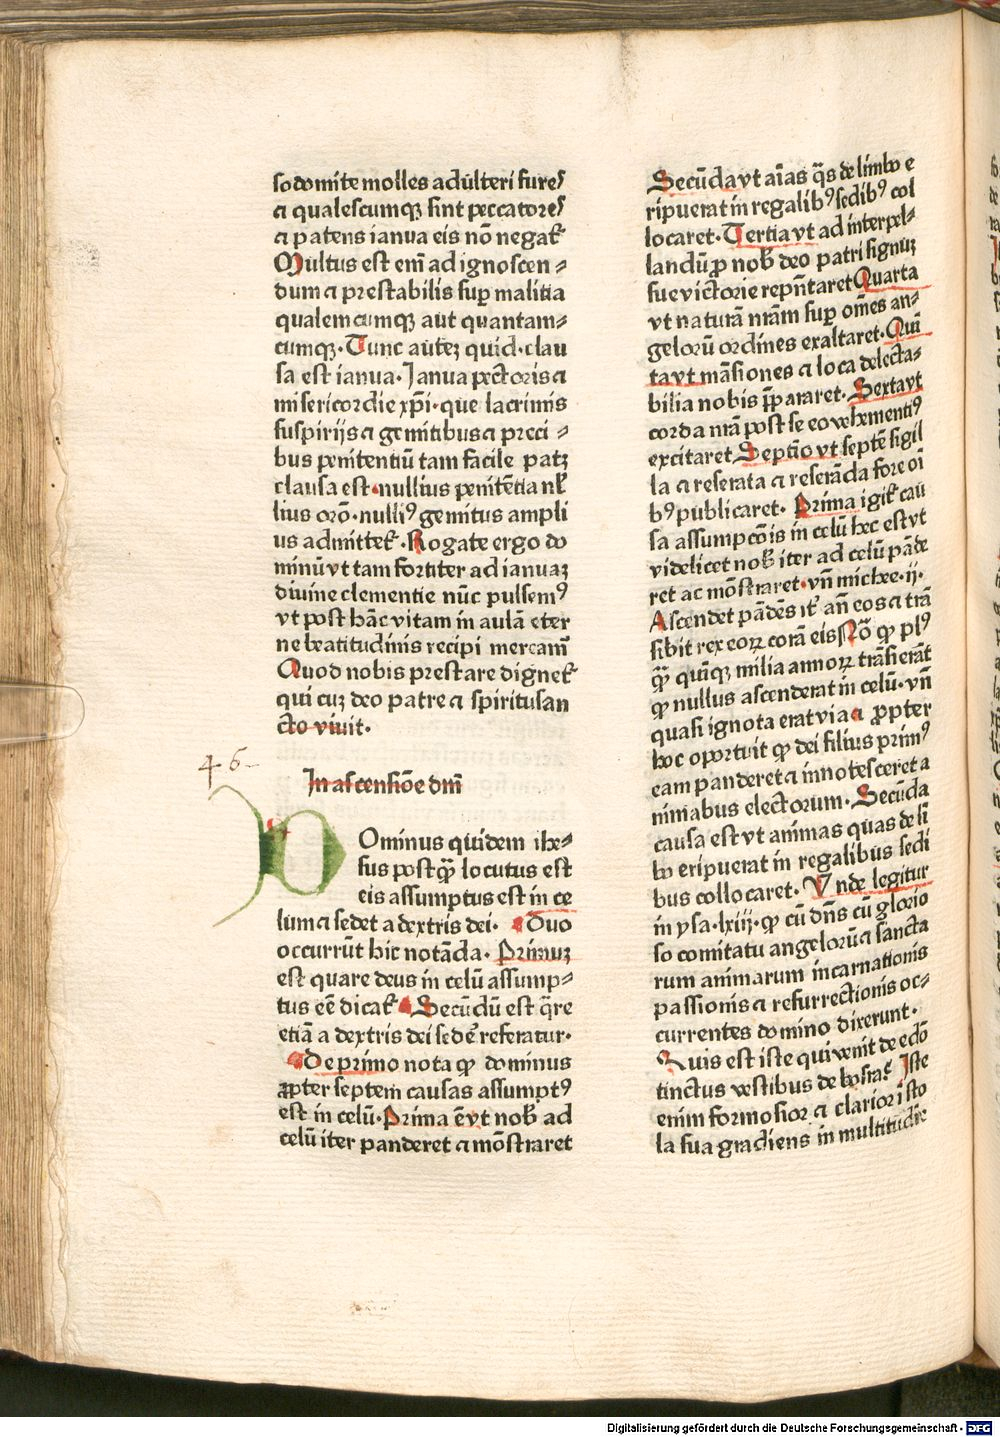 sodomite molles adulteri fures
⁊ qualescumqꝫ sint peccatores
⁊ patens ianua eis nō negat̄
Multus est em̄ ad ignoscen-
dum ⁊ prestabilis suꝑ malitia
qualemcumqꝫ aut quantam-
cumqꝫ. Tunc auteꝫ quid. clau
sa est ianua. Ianua pectoris ⁊
misericordie xp̄i. que lacrimis
suspirijs ⁊ gemitibus ⁊ preci-
bus penitentiū tam facile patꝫ
clausa est. nullius penitētia nl̄
lius orō. nulliꝰ gemitus ampli
us admittet̄. Rogate ergo do
minū vt tam fortiter ad ianuaꝫ
diuine clementie nūc pulsemꝰ
vt post hāc vitam in aulā eter
ne beatitudinis recipi mercam̄
Quod nobis prestare dignet̄
qui cuꝫ deo patre ⁊ spiritusan
cto viuit.
46-
In ascensiōe dm̄
Ominus quidem ihe-
sus postqͫ locutus est
eis assumptus est in ce
lum ⁊ sedet a dextris dei. Duo
occurrūt hic notāda. Primuꝫ
est quare deus in celū assump-
tus eē dicat̄ Secūdū est qr̄e
etiā a dextris dei sedē referatur.
De primo nota ꝙ dominus
ꝓpter septem causas assumptꝰ
est in celū. Prima ē vt nob̄ ad
celū iter panderet ⁊ mōstraret
Secūda vt aīas q̄s de limbo e
ripuerat in regalibꝰ sedibꝰ col
locaret. Tertia vt ad interpel-
landū ꝓ nob̄ deo patri signuꝫ
sue victorie repn̄taret Quarta
vt naturā nr̄am suꝑ om̄es an-
gelorū ordines exaltaret. Qui
ta vt mānsiones ⁊ loca delecta-
bilia nobis p̄pararet. Sexta vt
corda nr̄a post se eo vehementiꝰ
excitaret Septīo vt septē sigil
la ⁊ reserata ⁊ reserāda fore oī
bꝰ publicaret. Prima igit̄ cau
sa assumpcōis in celū hec est vt
videlicet nob̄ iter ad celū pāde
ret ac mōstraret. vn̄ michee. ij.
Ascendet pādēs it̄ an̄ eos ⁊ trā
sibit rex eorꝫ corā eis Nō ꝙ plꝰ
qͫ quīqꝫ milia annorꝫ trāsierāt
ꝙ nullus ascenderat in celū. vn̄
quasi ignota erat via ⁊ ꝓpter
hoc oportuit ꝙ dei filius primꝰ
eam panderet ⁊ innotesceret a
nimabus electorum. Secūda
causa est vt animas quas de li
bo eripuerat in regalibus sedi
bus collocaret. Vnde legitur
in ysa. lxiij. ꝙ cū dn̄s cū glorio
so comitatu angelorū ⁊ sancta
rum animarum incarnationis
passionis ⁊ resurrectionis oc-
currentes domino dixerunt.
Quis est iste qui venit de edō
tinctus vestibus de bosra? Iste
enim formosior ⁊ clarior ī sto
la sua gradiens in multitudie
Digitalisierung gefördert durch die Deutsche Forschungsgemeinschaft - DFG